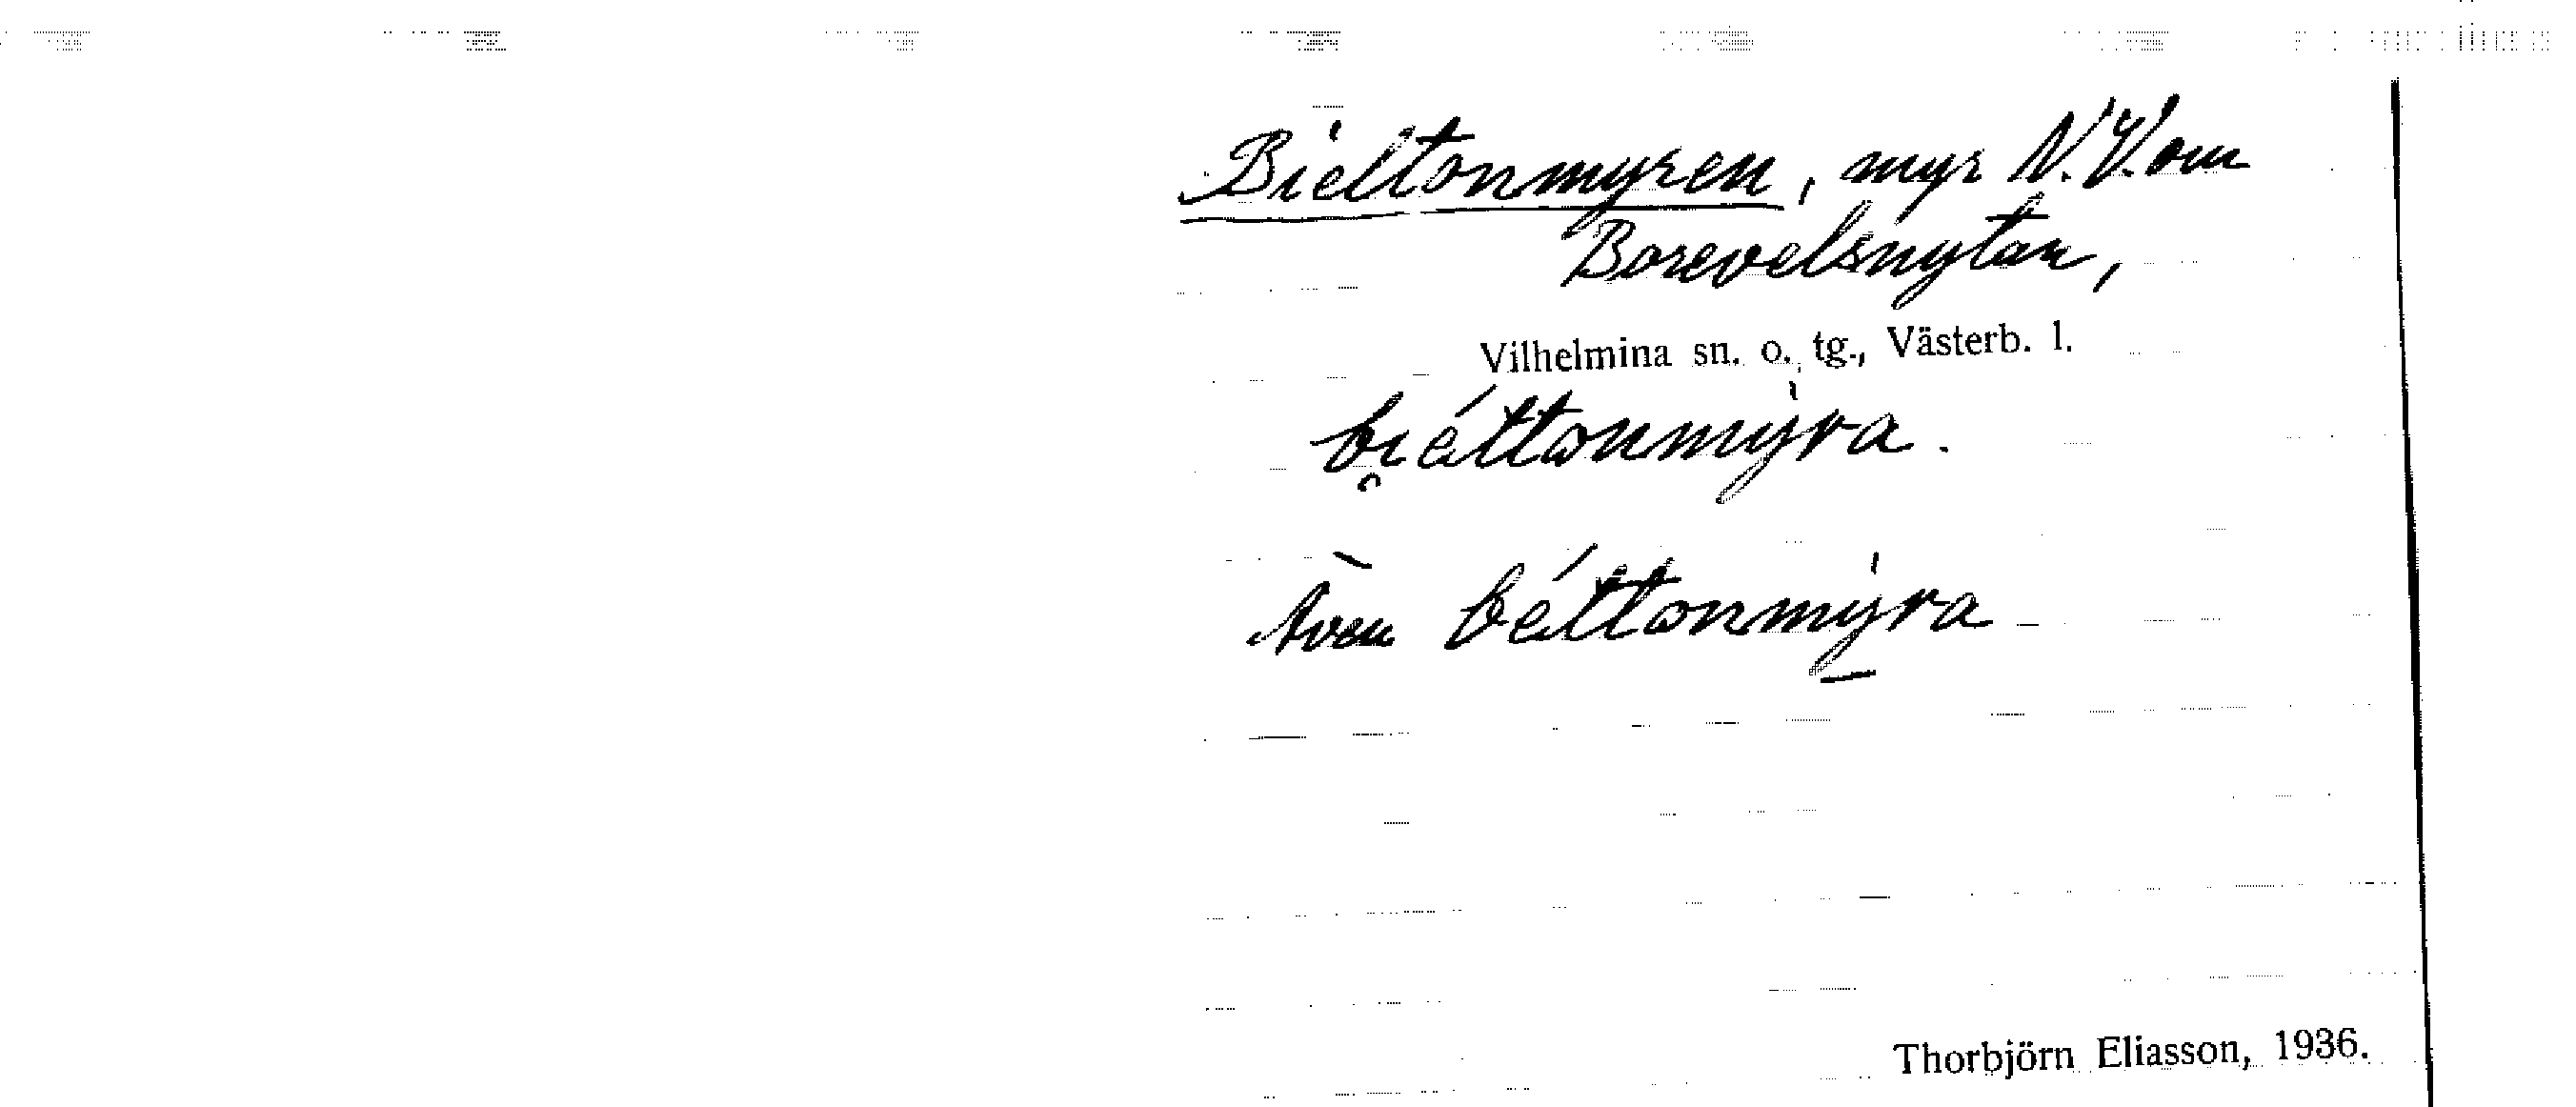 Bieltonmyren, myr N.V. om
Borevelsnytan,
Vilhelmina sn. o. tg., Västerb. l.
bi̯éltonmy̍ra.
Även béltonmy̍ra
Thorbjörn Eliasson, 1936.